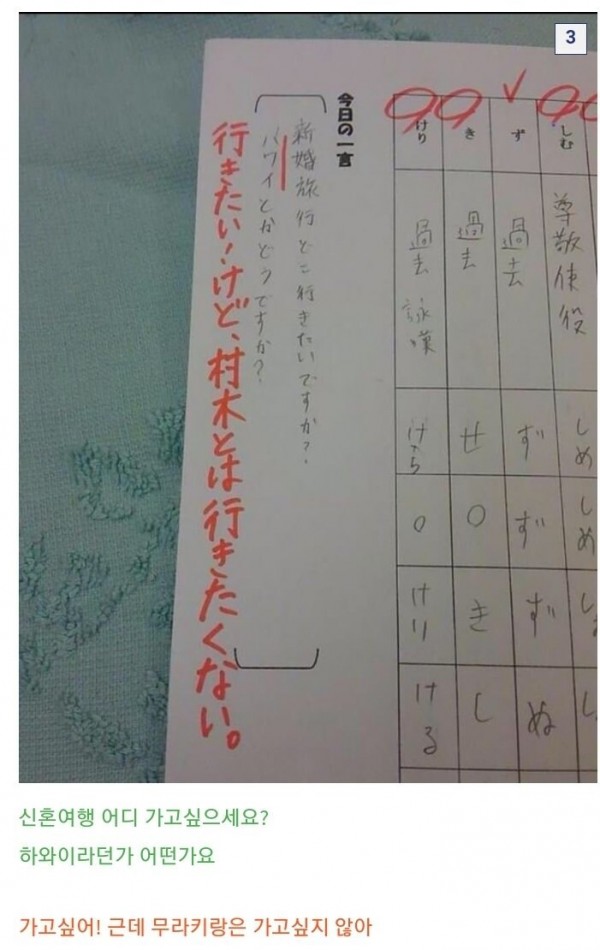 3
しむ 尊敬使役 しめ しめ
ず 過去 ず ず ず ぬ
き 過去 せ ○ き し
けり 過去 詠嘆 けら ○ けり ける
今日の一言
新婚旅行どこ行きたいですか?
ハワイとかどうですか?
行きたい!けど、村木とは行きたくない。
신혼여행 어디 가고싶으세요?
하와이라던가 어떤가요
가고싶어! 근데 무라키랑은 가고싶지 않아